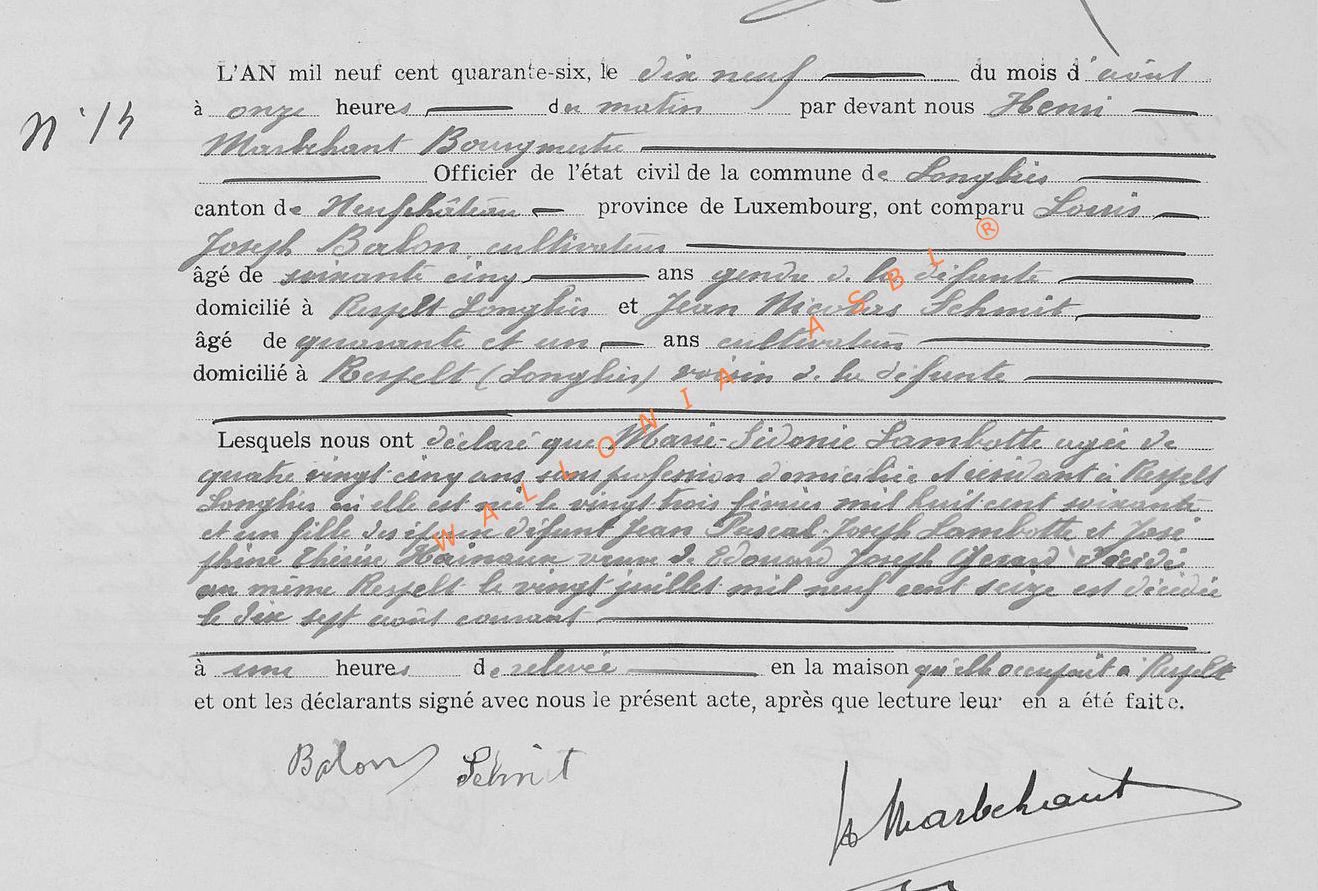 L'AN mil neuf cent quarante-six, le dix neuf du mois d'août
N° 15
à onze heures du matin par devant nous Henri
Marbehant Bourgmestre
Officier de l'état civil de la commune de Longlier
canton de Neufchâteau province de Luxembourg, ont comparu Louis
Joseph Balon cultivateur
âgé de soixante cinq ans gendre de la défunte
domicilié à Respelt Longlier et Jean Nicolas Schmit
âgé de quarante et un ans cultivateur
domicilié à Respelt (Longlier) voisin de la défunte
Lesquels nous ont déclaré que Marie-Sidonie Lambotte agée de
quatre vingt cinq ans sans profession domiciliée et résidant à Respelt
Longlier où elle est née le vingt trois février mil huit cent soixante
et un fille des époux défunt Jean Pascal Joseph Lambotte et José
phine Thérèse Hainaux veuve de Edouard Joseph Gérard décédé
au même Respelt le vingt juillet mil neuf cent seize est décédée
le dix sept août courant
à une heures de relevée en la maison qu'elle occupait à Respelt
et ont les déclarants signé avec nous le présent acte, après que lecture leur en a été faite.
Balon Schmit
H Marbehant
WALLONIA ASBL ®